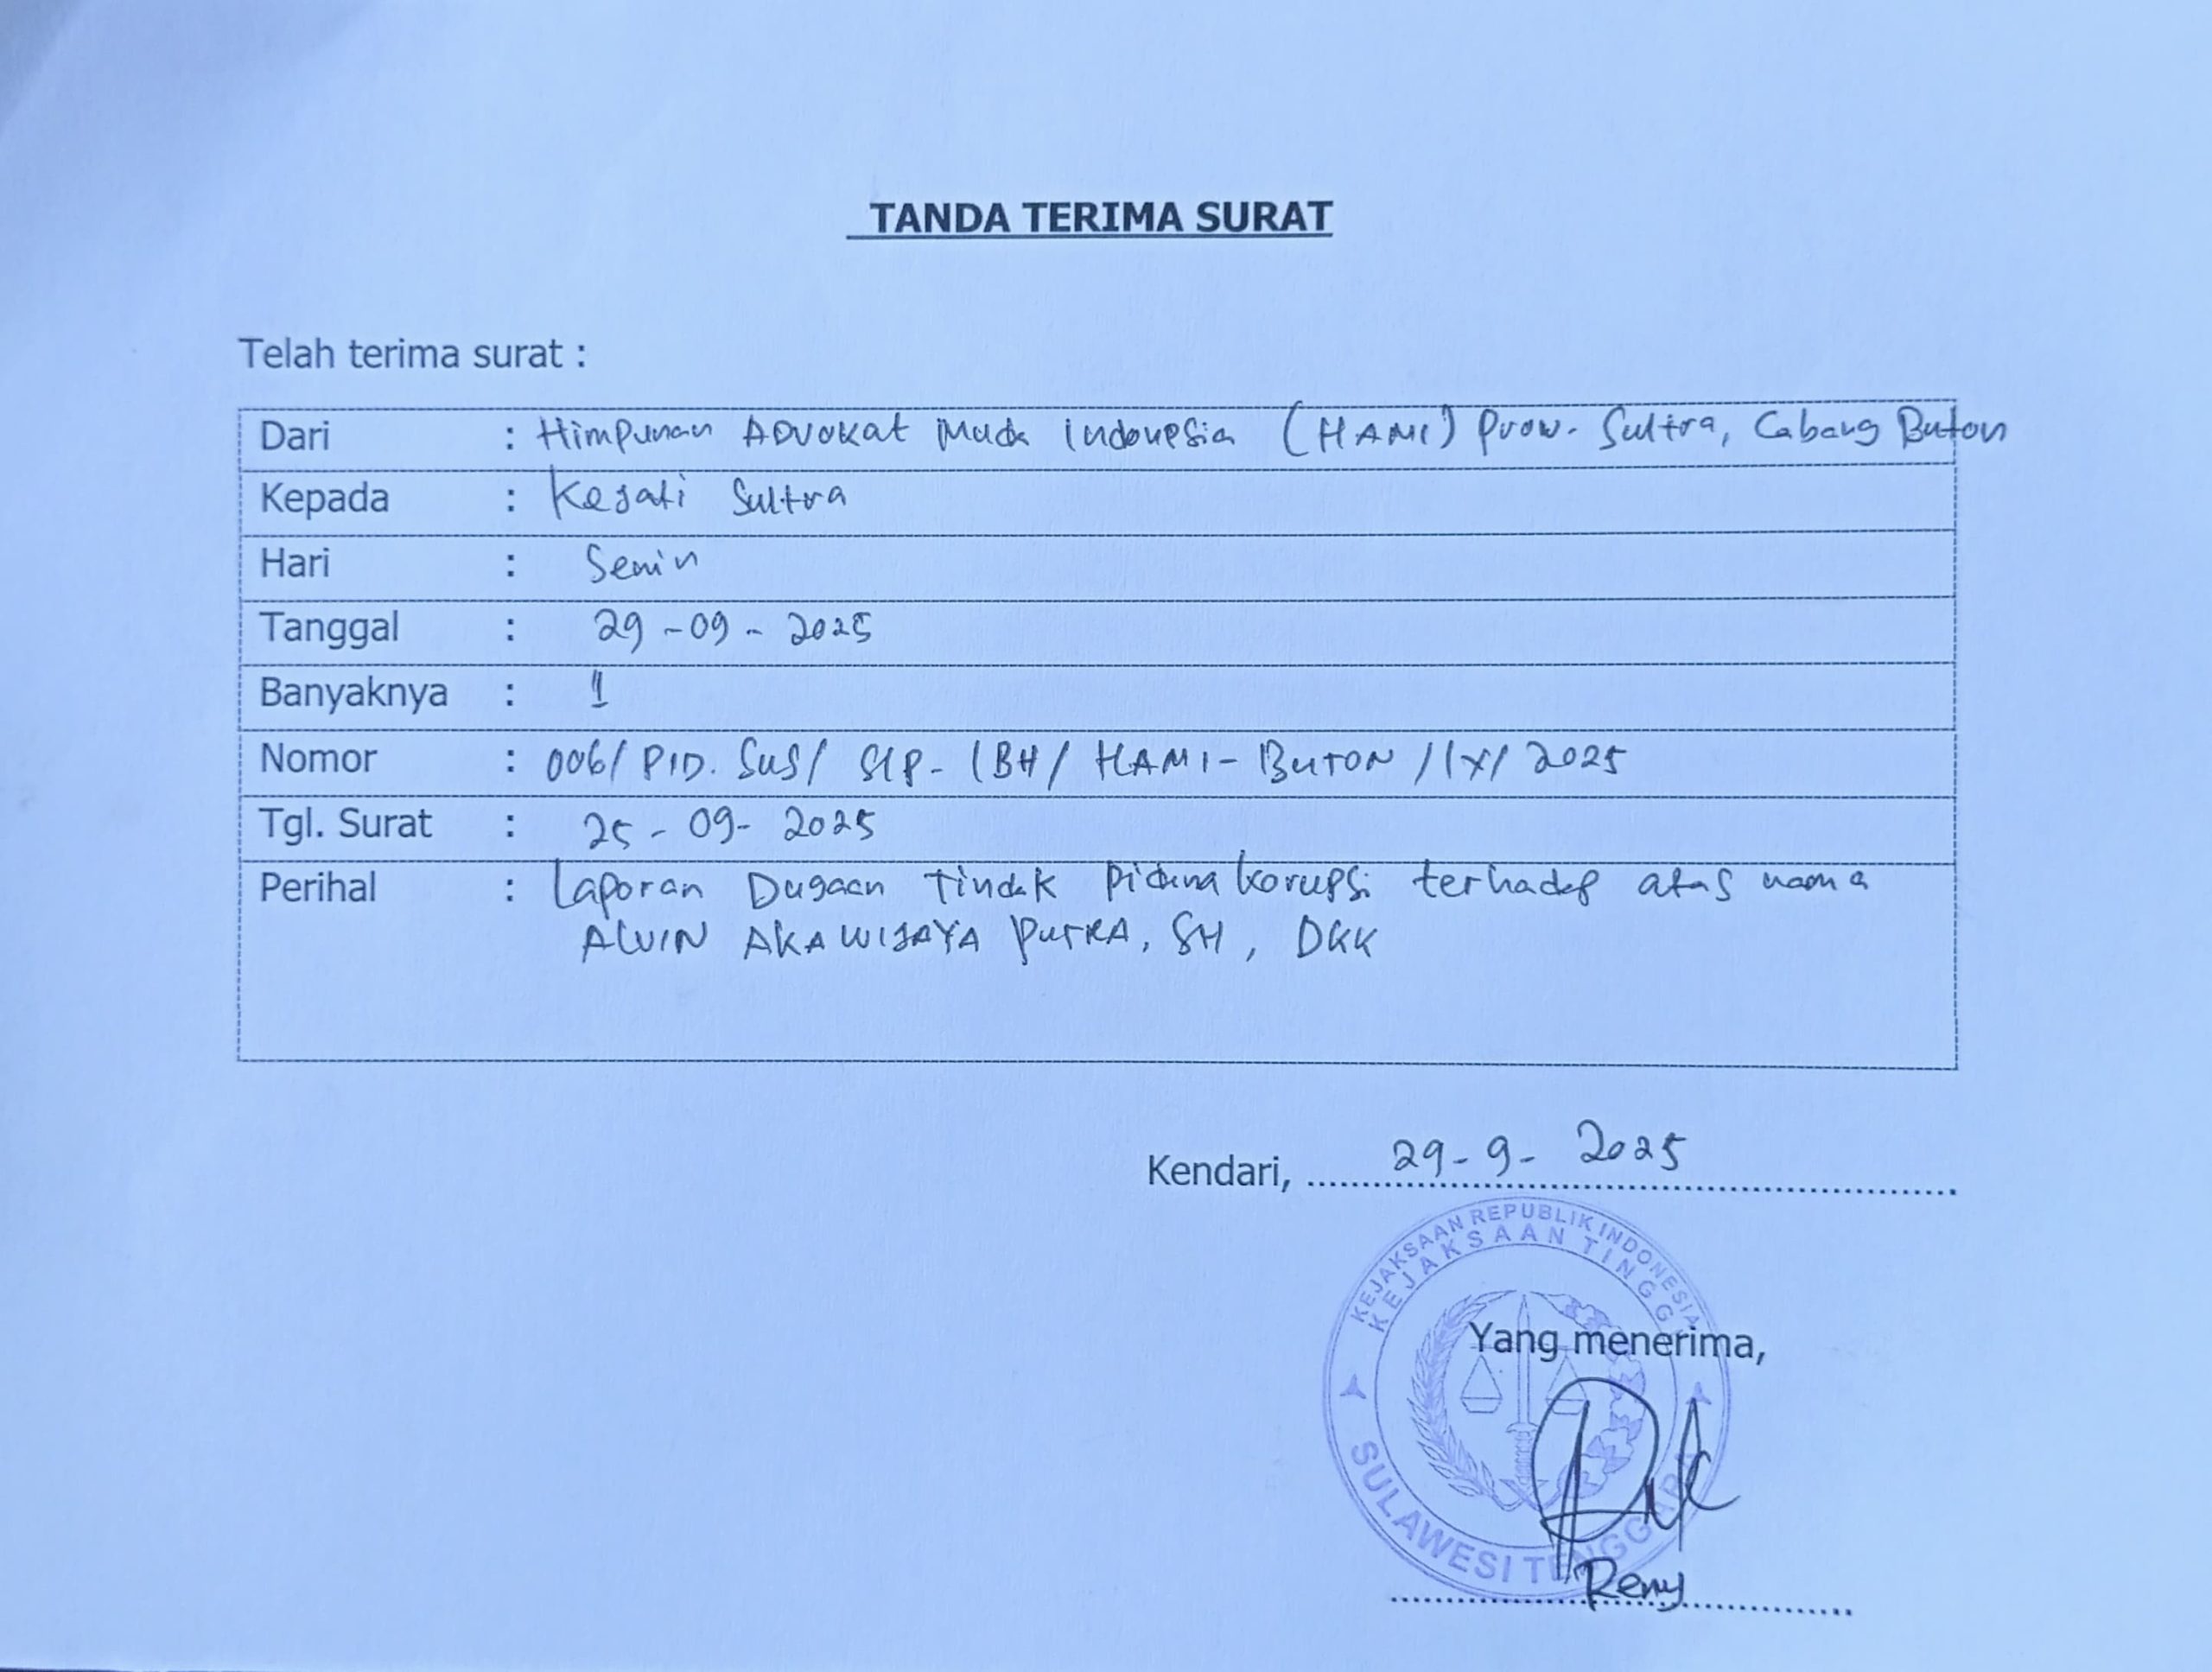 TANDA TERIMA SURAT
Telah terima surat :
Dari : Himpunan ADVOKat Muda Indonesia (HAMI) Prov. Sultra, Cabang Buton
Kepada : Kejati Sultra
Hari : Senin
Tanggal : 29-09-2025
Banyaknya : 1
Nomor : 006/ PID. SUS/ SIP-LBH/ HAMI-BUTON /IX/ 2025
Tgl. Surat : 25-09-2025
Perihal : Laporan Dugaan Tindak Pidana Korupsi terhadap atas nama
ALVIN AKAWIJAYA PUTRA, SH, DKK
Kendari, 29-9-2025
KEJAKSAAN REPUBLIK INDONESIA
KEJAKSAAN TINGGI
Yang menerima,
SULAWESI TENGGARA
Reny